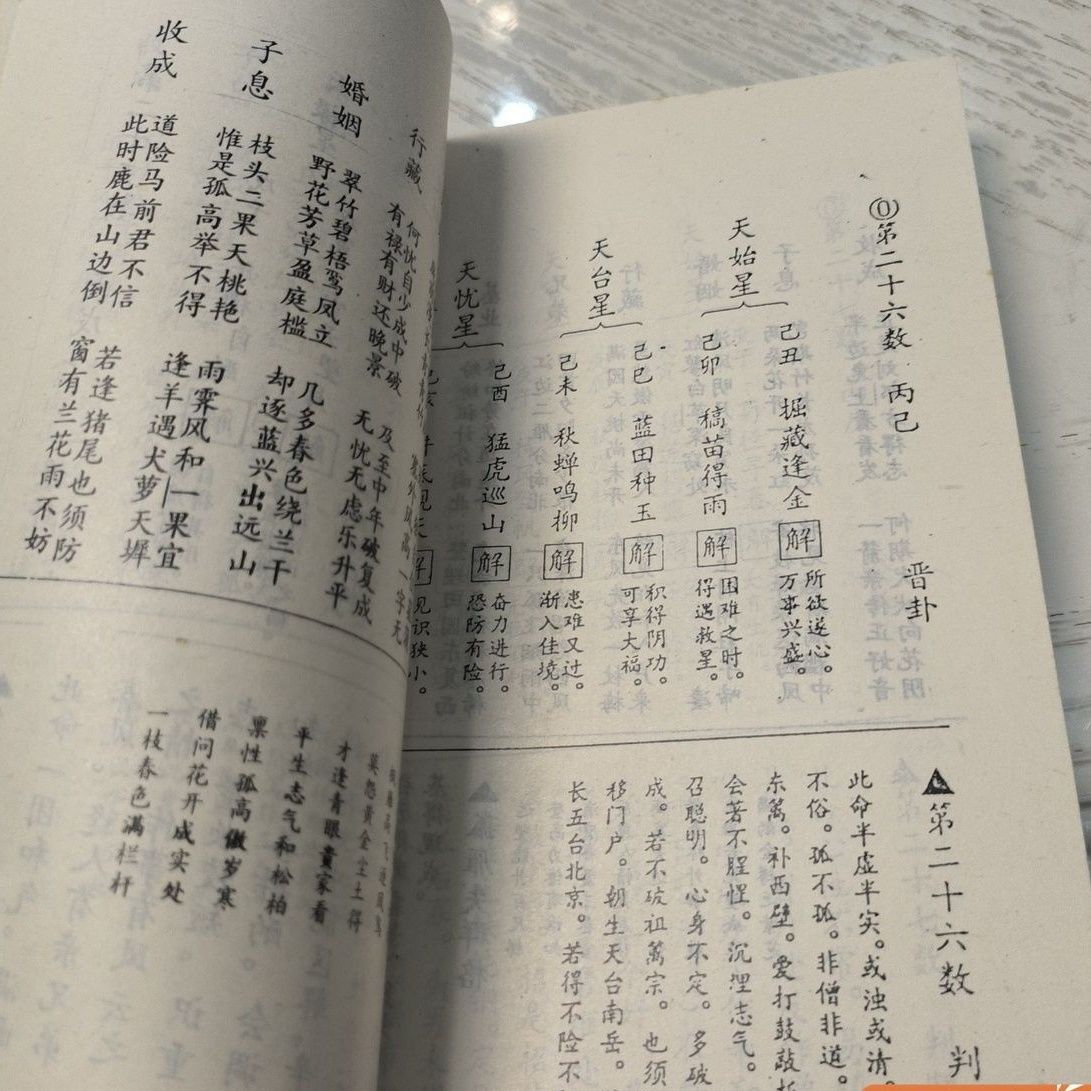 ⓪第二十六数 丙己 晋卦
天始星
己丑 掘藏逢金 解 所欲遂心。万事兴盛。
己卯 稿苗得雨 解 困难之时。得遇救星。
天台星
己巳 蓝田种玉 解 积得阴功。可享大福。
己未 秋蝉鸣柳 解 患难又过。渐入佳境。
天忧星
己酉 猛虎巡山 解 奋力进行。恐防有险。
解 见识狭小。
▲第二十六数 判
此命半虚半实。或浊或清。
不俗。孤不孤。非僧非道。
东篱。补西壁。爱打鼓敲
会若不腥惺。沉埋志气。
召聪明。心身不定。多破
成。若不破祖离宗。也须
移门户。朝生天台南岳。
长五台北京。若得不险不
行藏
何忧自少成中破 及至中年破复成
有禄有财还晚景 无忧无虑乐升平
婚姻
翠竹碧梧鸾凤立 几多春色绕兰干
野花芳草盈庭槛 却逐蓝兴出远山
子息
枝头二果天桃艳 雨霁风和一果宜
惟是孤高举不得 逢羊遇犬萝天墀
收成
道险马前君不信 若逢猪尾也须防
此时鹿在山边倒 窗有兰花雨不妨
莫怨黄金尘土得
才逢青眼贵家看
平生志气和松柏
禀性孤高傲岁寒
借问花开成实处
一枝春色满栏杆